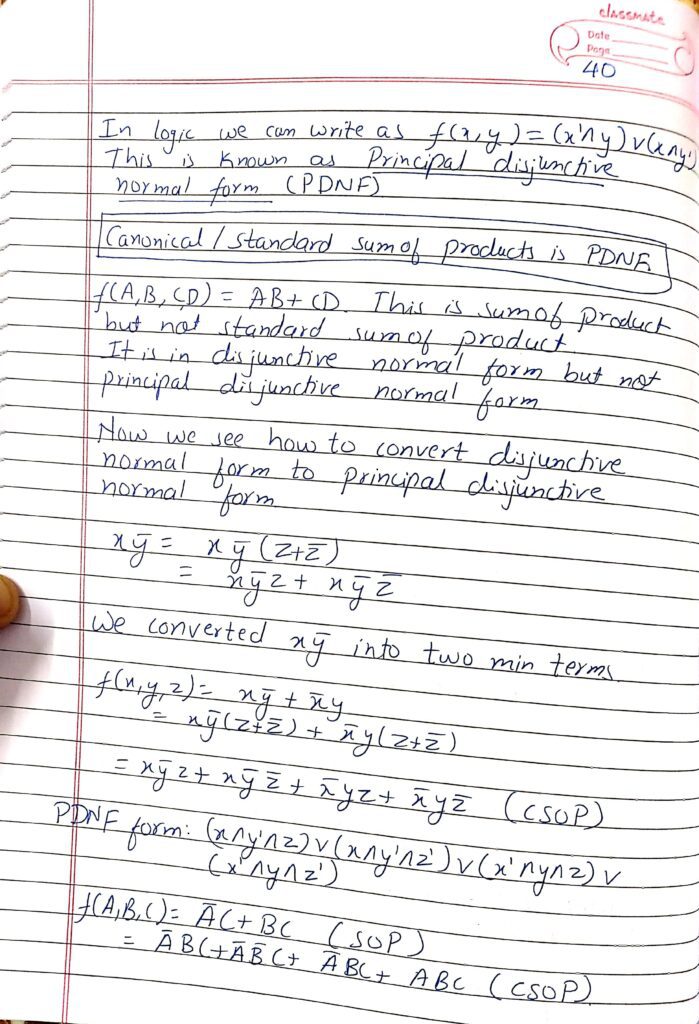 classmate
Date
Page
40
In logic we can write as f(x,y) = (x'∧y)∨(x∧y')
This is known as Principal disjunctive
normal form (PDNF)
Canonical / standard sum of products is PDNF
f(A,B,C,D) = AB + CD. This is sum of product
but not standard sum of product.
It is in disjunctive normal form but not
principal disjunctive normal form
Now we see how to convert disjunctive
normal form to principal disjunctive
normal form
xȳ = xȳ(z+z̄)
= xȳz + xȳz̄
We converted xȳ into two min terms.
f(x,y,z) = xȳ + x̄y
= xȳ(z+z̄) + x̄y(z+z̄)
= xȳz + xȳz̄ + x̄yz + x̄yz̄ (CSOP)
PDNF form: (x∧y'∧z)∨(x∧y'∧z')∨(x'∧y∧z)∨
(x'∧y∧z')
f(A,B,C) = ĀC + BC (SOP)
= ĀBC + ĀB̄C + ĀBC + ABC (CSOP)